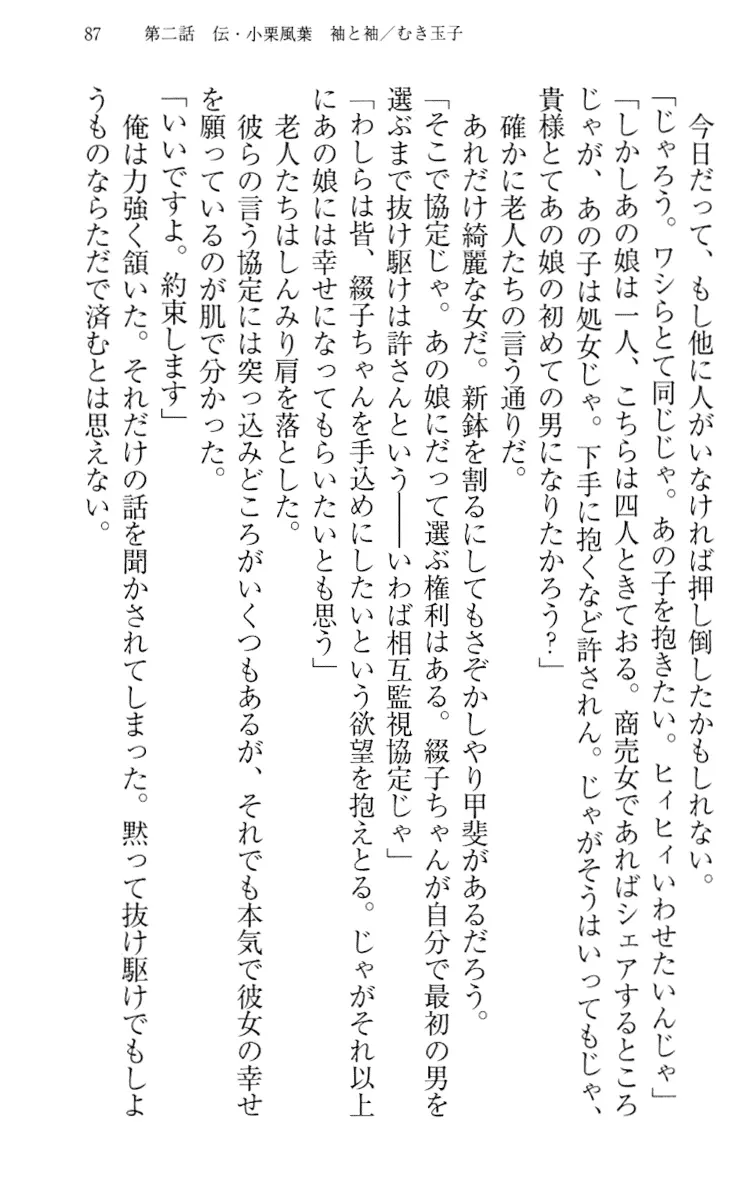 87　第二話　伝・小栗風葉　袖と袖／むき玉子
　今日だって、もし他に人がいなければ押し倒したかもしれない。
「じゃろう。ワシらとて同じじゃ。あの子を抱きたい。ヒィヒィいわせたいんじゃ」
「しかしあの娘は一人、こちらは四人ときておる。商売女であればシェアするところ
じゃが、あの子は処女じゃ。下手に抱くなど許されん。じゃがそうはいってもじゃ、
貴様とてあの娘の初めての男になりたかろう？」
　確かに老人たちの言う通りだ。
　あれだけ綺麗な女だ。新鉢を割るにしてもさぞかしやり甲斐があるだろう。
「そこで協定じゃ。あの娘にだって選ぶ権利はある。綴子ちゃんが自分で最初の男を
選ぶまで抜け駆けは許さんという――いわば相互監視協定じゃ」
「わしらは皆、綴子ちゃんを手込めにしたいという欲望を抱えとる。じゃがそれ以上
にあの娘には幸せになってもらいたいとも思う」
　老人たちはしんみり肩を落とした。
　彼らの言う協定には突っ込みどころがいくつもあるが、それでも本気で彼女の幸せ
を願っているのが肌で分かった。
「いいですよ。約束します」
　俺は力強く頷いた。それだけの話を聞かされてしまった。黙って抜け駆けでもしよ
うものならただで済むとは思えない。